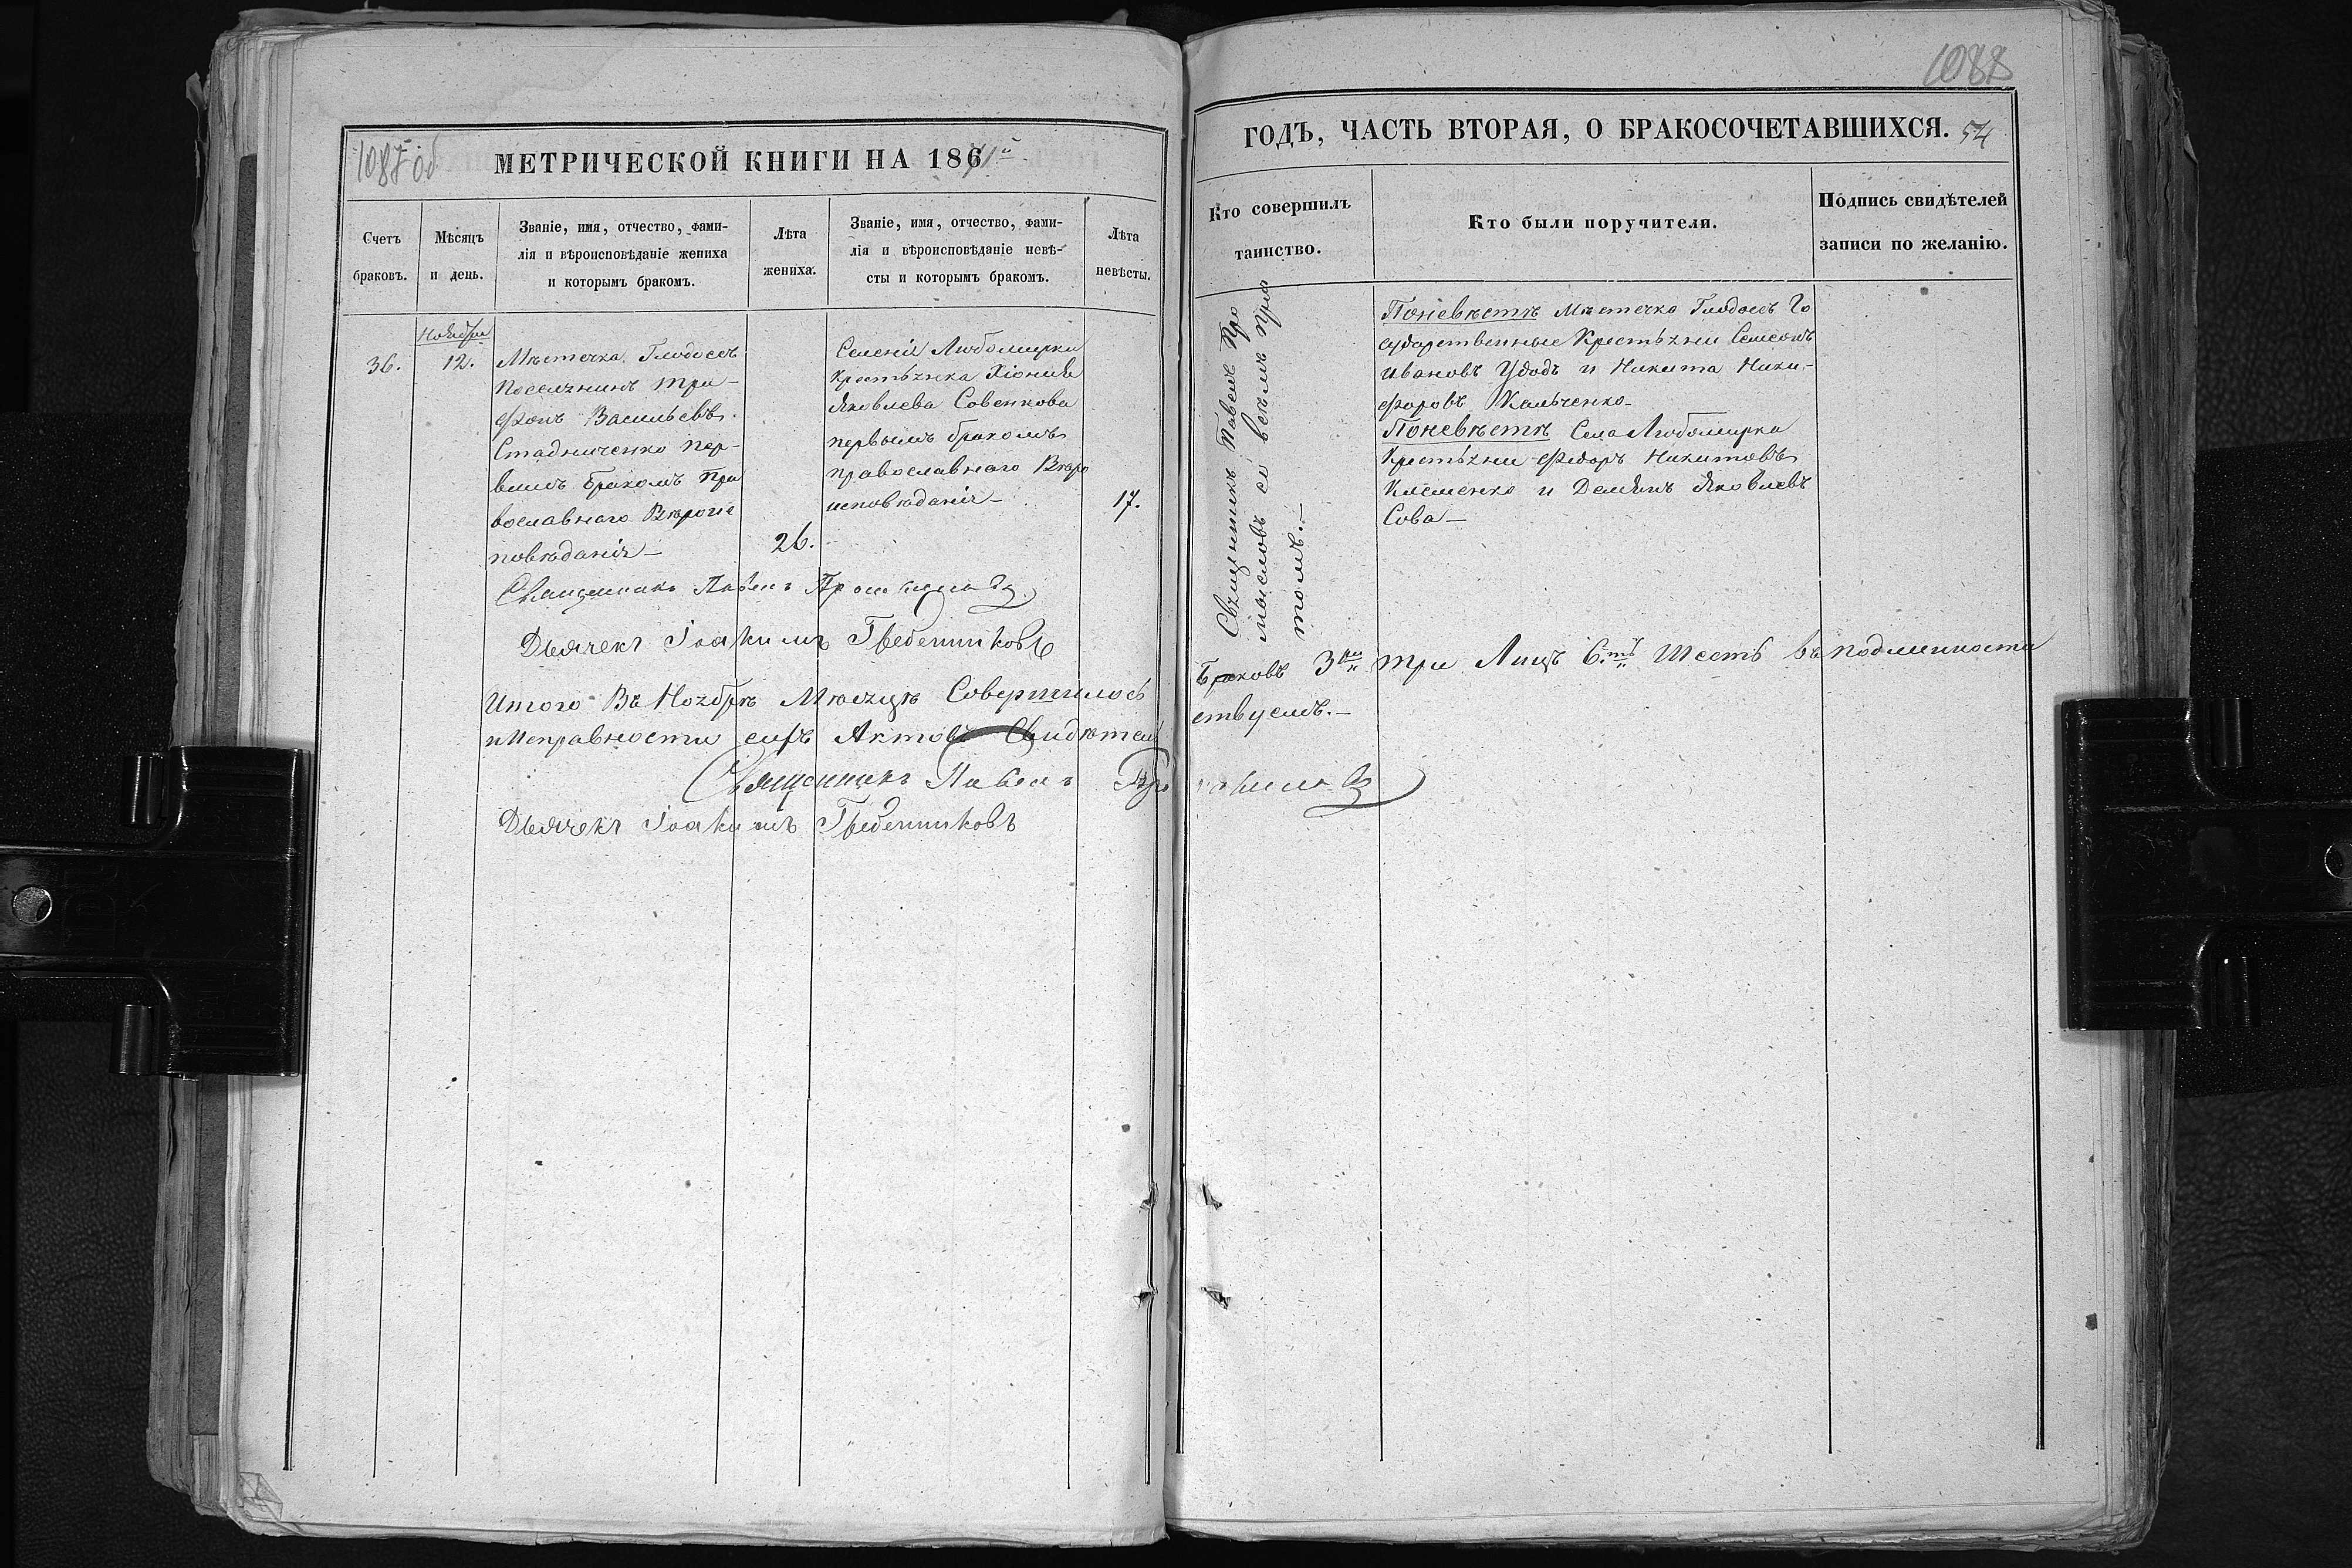 1087 об
МЕТРИЧЕСКОЙ КНИГИ НА 186
Счетъ браковъ.
Мѣсяцъ и день.
Званіе, имя, отчество, фами-
лія и вѣроисповѣданіе жениха
и которымъ бракомъ.
Лѣта жениха.
Званіе, имя, отчество, фами-
лія и вѣроисповѣданіе невѣ-
сты и которымъ бракомъ.
Лѣта невѣсты.
36.
Ноября
12.
Мѣстечка Глодосъ
Поселянинъ Три-
фонъ Васильевъ
Стадниченко пер-
вымъ бракомъ Пра
вославнаго Вѣроис
повѣданія—
26.
Селенія Любомирки
Крестьянка Хіонія
Яковлева Совенкова
первымъ бракомъ
православнаго Вѣро
исповѣданія—
17.
Священникъ Павелъ
Дьячекъ Іоакимъ Гребенниковъ
Итого Въ Ноябрѣ Мѣсяцѣ Совершилось
и Исправности сихъ Актовъ Свидѣтель
Священникъ Павелъ
Дьячекъ Іоакимъ Гребенниковъ
1088
ГОДЪ, ЧАСТЬ ВТОРАЯ, О БРАКОСОЧЕТАВШИХСЯ. 54
Кто совершилъ
таинство.
Кто были поручители.
Подпись свидѣтелей
записи по желанію.
Священникъ Павелъ Про
мысловъ со всѣмъ при
томъ.—
Поневѣстѣ Мѣстечка Глодосъ Го
сударственные Крестьяни Семеонъ
Ивановъ Удодъ и Никита Ники-
форовъ Кальченко—
Поневѣстѣ Села Любомирки
Крестьяни Федоръ Никитовъ
Клеменко и Демянъ Яковлевъ
Сова—
Браковъ 3 три Лицъ 6 Шесть въ подлинности
ствуемъ.—